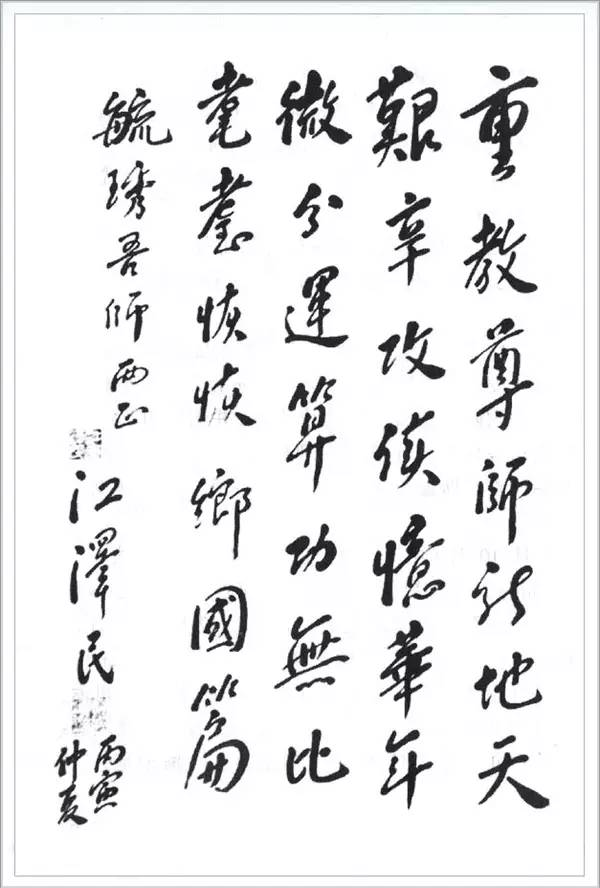 重教尊師新地天
艱辛攻讀憶華年
微分運算功無比
耄耋恢恢鄉國篇
毓琇吾師兩正
江澤民
丙寅
仲夏